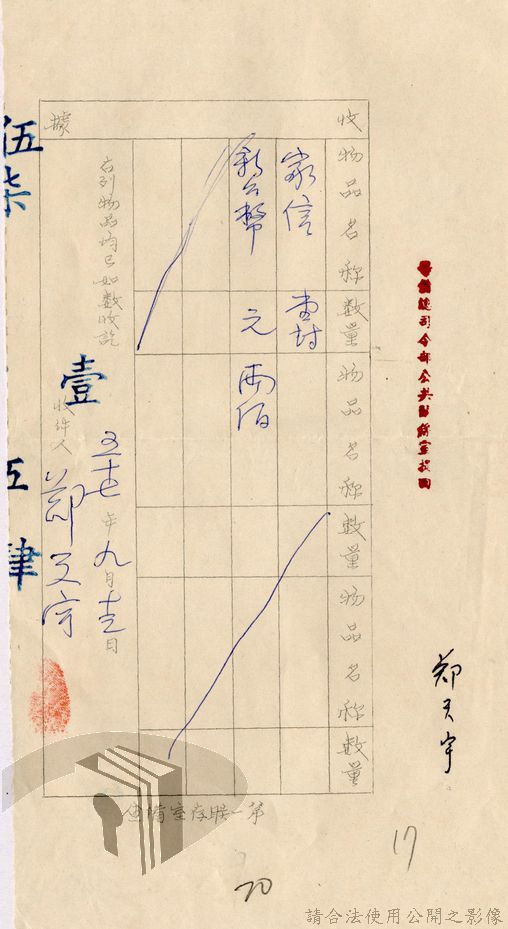 警備總司令部公共關係室損贈
鄭天宇
收據
物品名称 数量 物品名称 数量 物品名称 数量
家信 壹封
新台幣 元 兩佰
右列物品均已如数收訖
五十七年九月十三日
收件人 鄭天宇
第一联存室備查
伍柒
壹
肆
17
70
請合法使用公開之影像